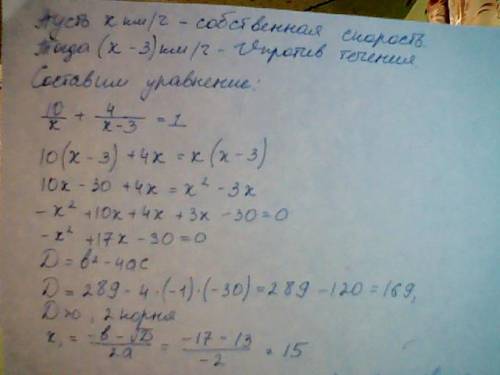 Пусть x км/ч - собственная скорость.
Тогда (x - 3) км/ч - V против течения.
Составим уравнение:
10/x + 4/(x-3) = 1
10(x - 3) + 4x = x(x - 3)
10x - 30 + 4x = x² - 3x
-x² + 10x + 4x + 3x - 30 = 0
-x² + 17x - 30 = 0
D = b² - 4ac
D = 289 - 4·(-1)·(-30) = 289 - 120 = 169,
D>0, 2 корня
x₁ = (-b - √D)/2a = (-17 - 13)/-2 = 15